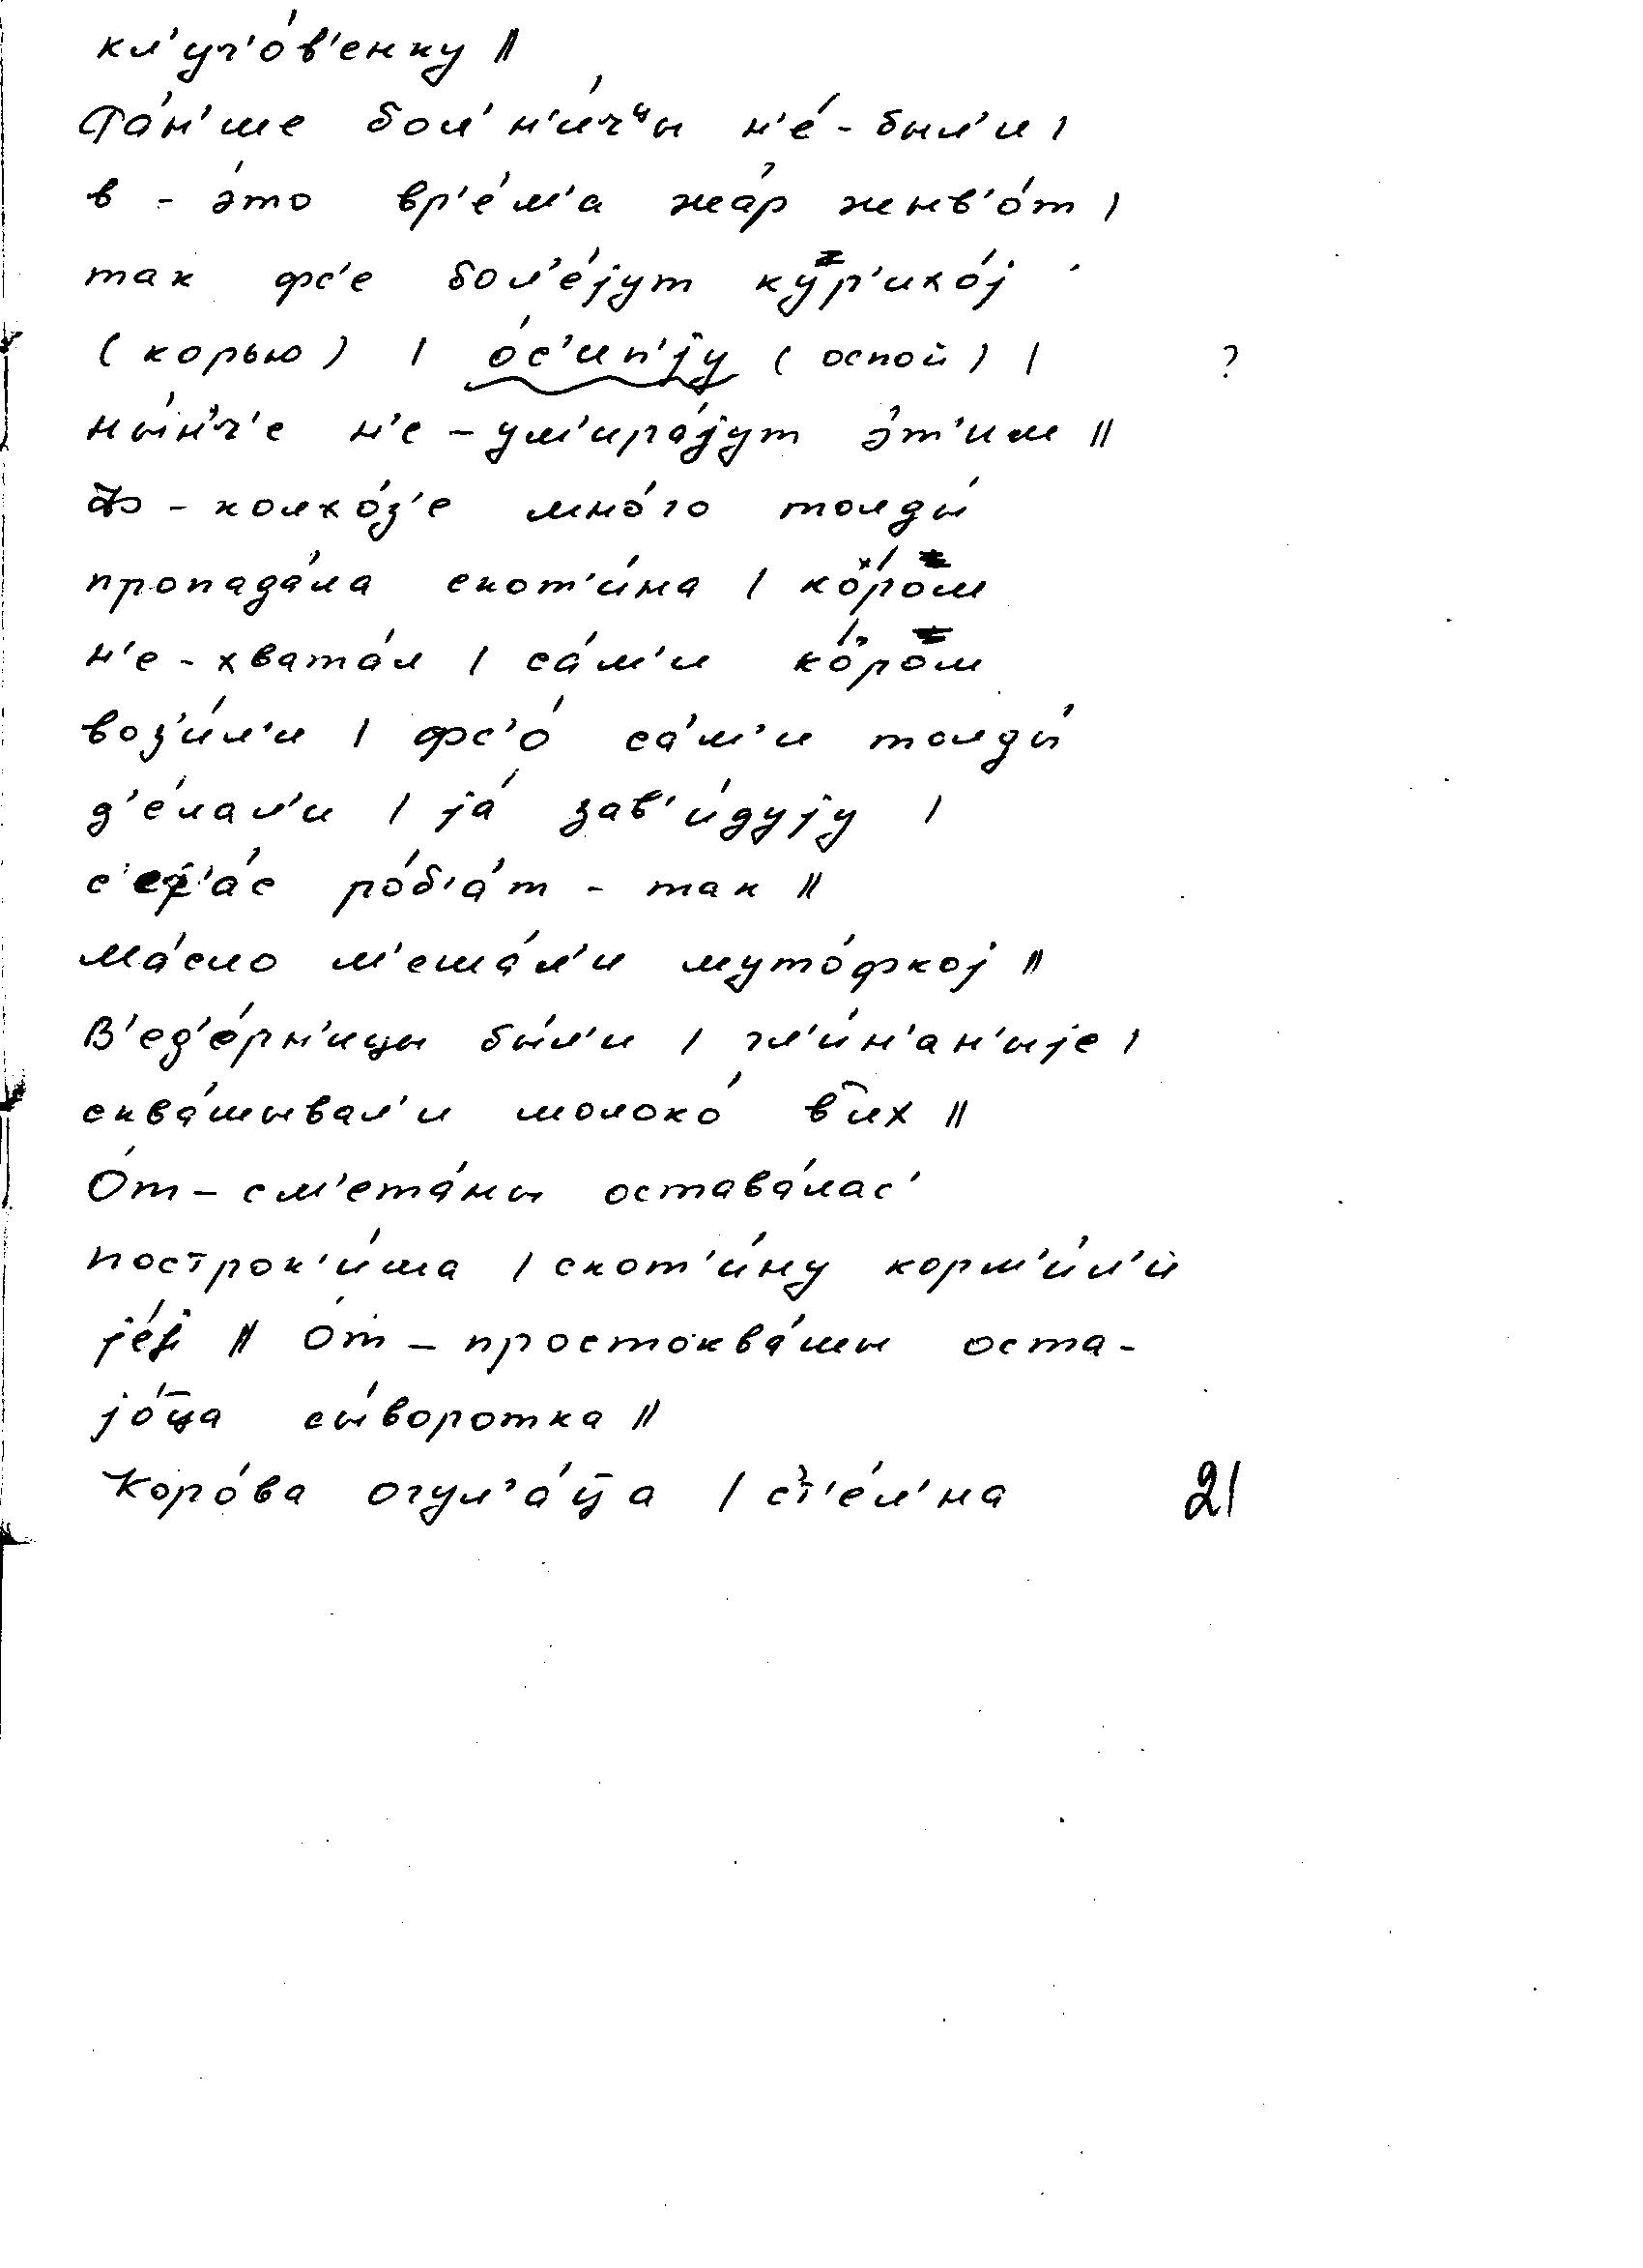 кл'уч'о́в'енку ||
Ра́н'ше бол'н'и́чцы н'е́-был'и |
в-э́то вр'е́м'а жа́р жыв'о́т |
так фс'е бол'е́јут кур'ихо́ј
(корью) | о́с'ип'ју (оспой) | ?
ны́н'ч'е н'е-ум'ира́јут э́т'им ||
Ф-колхо́з'е мно́го толды́
пропада́ла скот'и́на | ко́ром
н'е-хвата́л | са́м'и ко́ром
воз'и́л'и | фс'о́ са́м'и толды́
д'е́лал'и | ја́ зав'и́дују |
с'ец'а́с ро́б'а́т-так ||
Ма́сло м'еша́л'и муто́фкој ||
В'ед'о́рн'ицы бы́л'и | гл'и́н'ан'ыје |
сква́шывал'и молоко́ в их ||
О́т-см'ета́ны остава́лас'
построк'и́ша | скот'и́ну корм'и́л'и
је́ј || О́т-простоква́шы оста-
јо́ца сы́воротка ||
Коро́ва огул'а́ца | ст'е́л'на 21